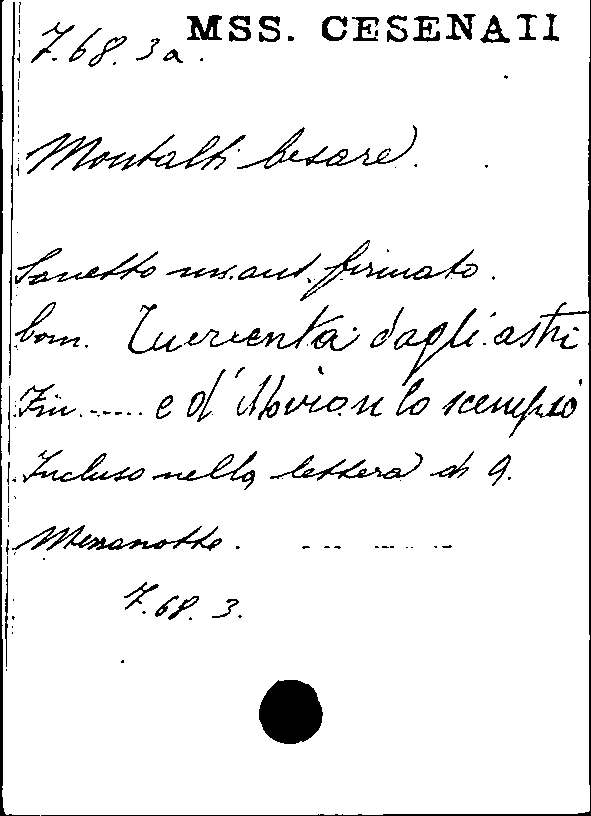 MSS. CESENA II
7.68.3a.
Montalti Cesare.
Sonetto ms. aut. firmato.
Com. dagli astri
Fin ...... e d' lo scempio
Incluso nella lettera di A.
Mezzanotte.
7.68.3.